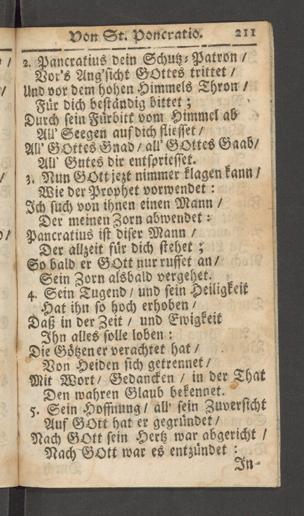 Von St. Poncratio. 211
2. Pancratius dein Schutz-Patron /
Vor's Ang'sicht GOttes trittet /
Und vor dem hohen Himmels Thron /
Für dich beständig bittet ;
Durch sein Fürbitt vom Himmel ab
All' Seegen auf dich fliesset /
All' GOttes Gnad / all' GOttes Gaab /
All' Gutes dir entspriesset.
3. Nun GOtt jezt nimmer klagen kann /
Wie der Prophet vorwendet :
Ich such von ihnen einen Mann /
Der meinen Zorn abwendet :
Pancratius ist diser Mann /
Der allzeit für dich stehet ;
So bald er GOtt nur ruffet an /
Sein Zorn alsbald vergehet.
4. Sein Tugend / und sein Heiligkeit
Hat ihn so hoch erhoben /
Daß in der Zeit / und Ewigkeit
Ihn alles solle loben :
Die Götzen er verachtet hat /
Von Heiden sich getrennet /
Mit Wort / Gedancken / in der That
Den wahren Glaub bekennet.
5. Sein Hoffnung / all' sein Zuversicht
Auf GOtt hat er gegründet /
Nach GOtt sein Hertz war abgericht /
Nach GOtt war es entzündet :
In-